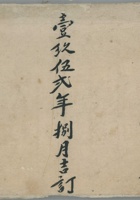 壹玖伍貳年捌月吉訂